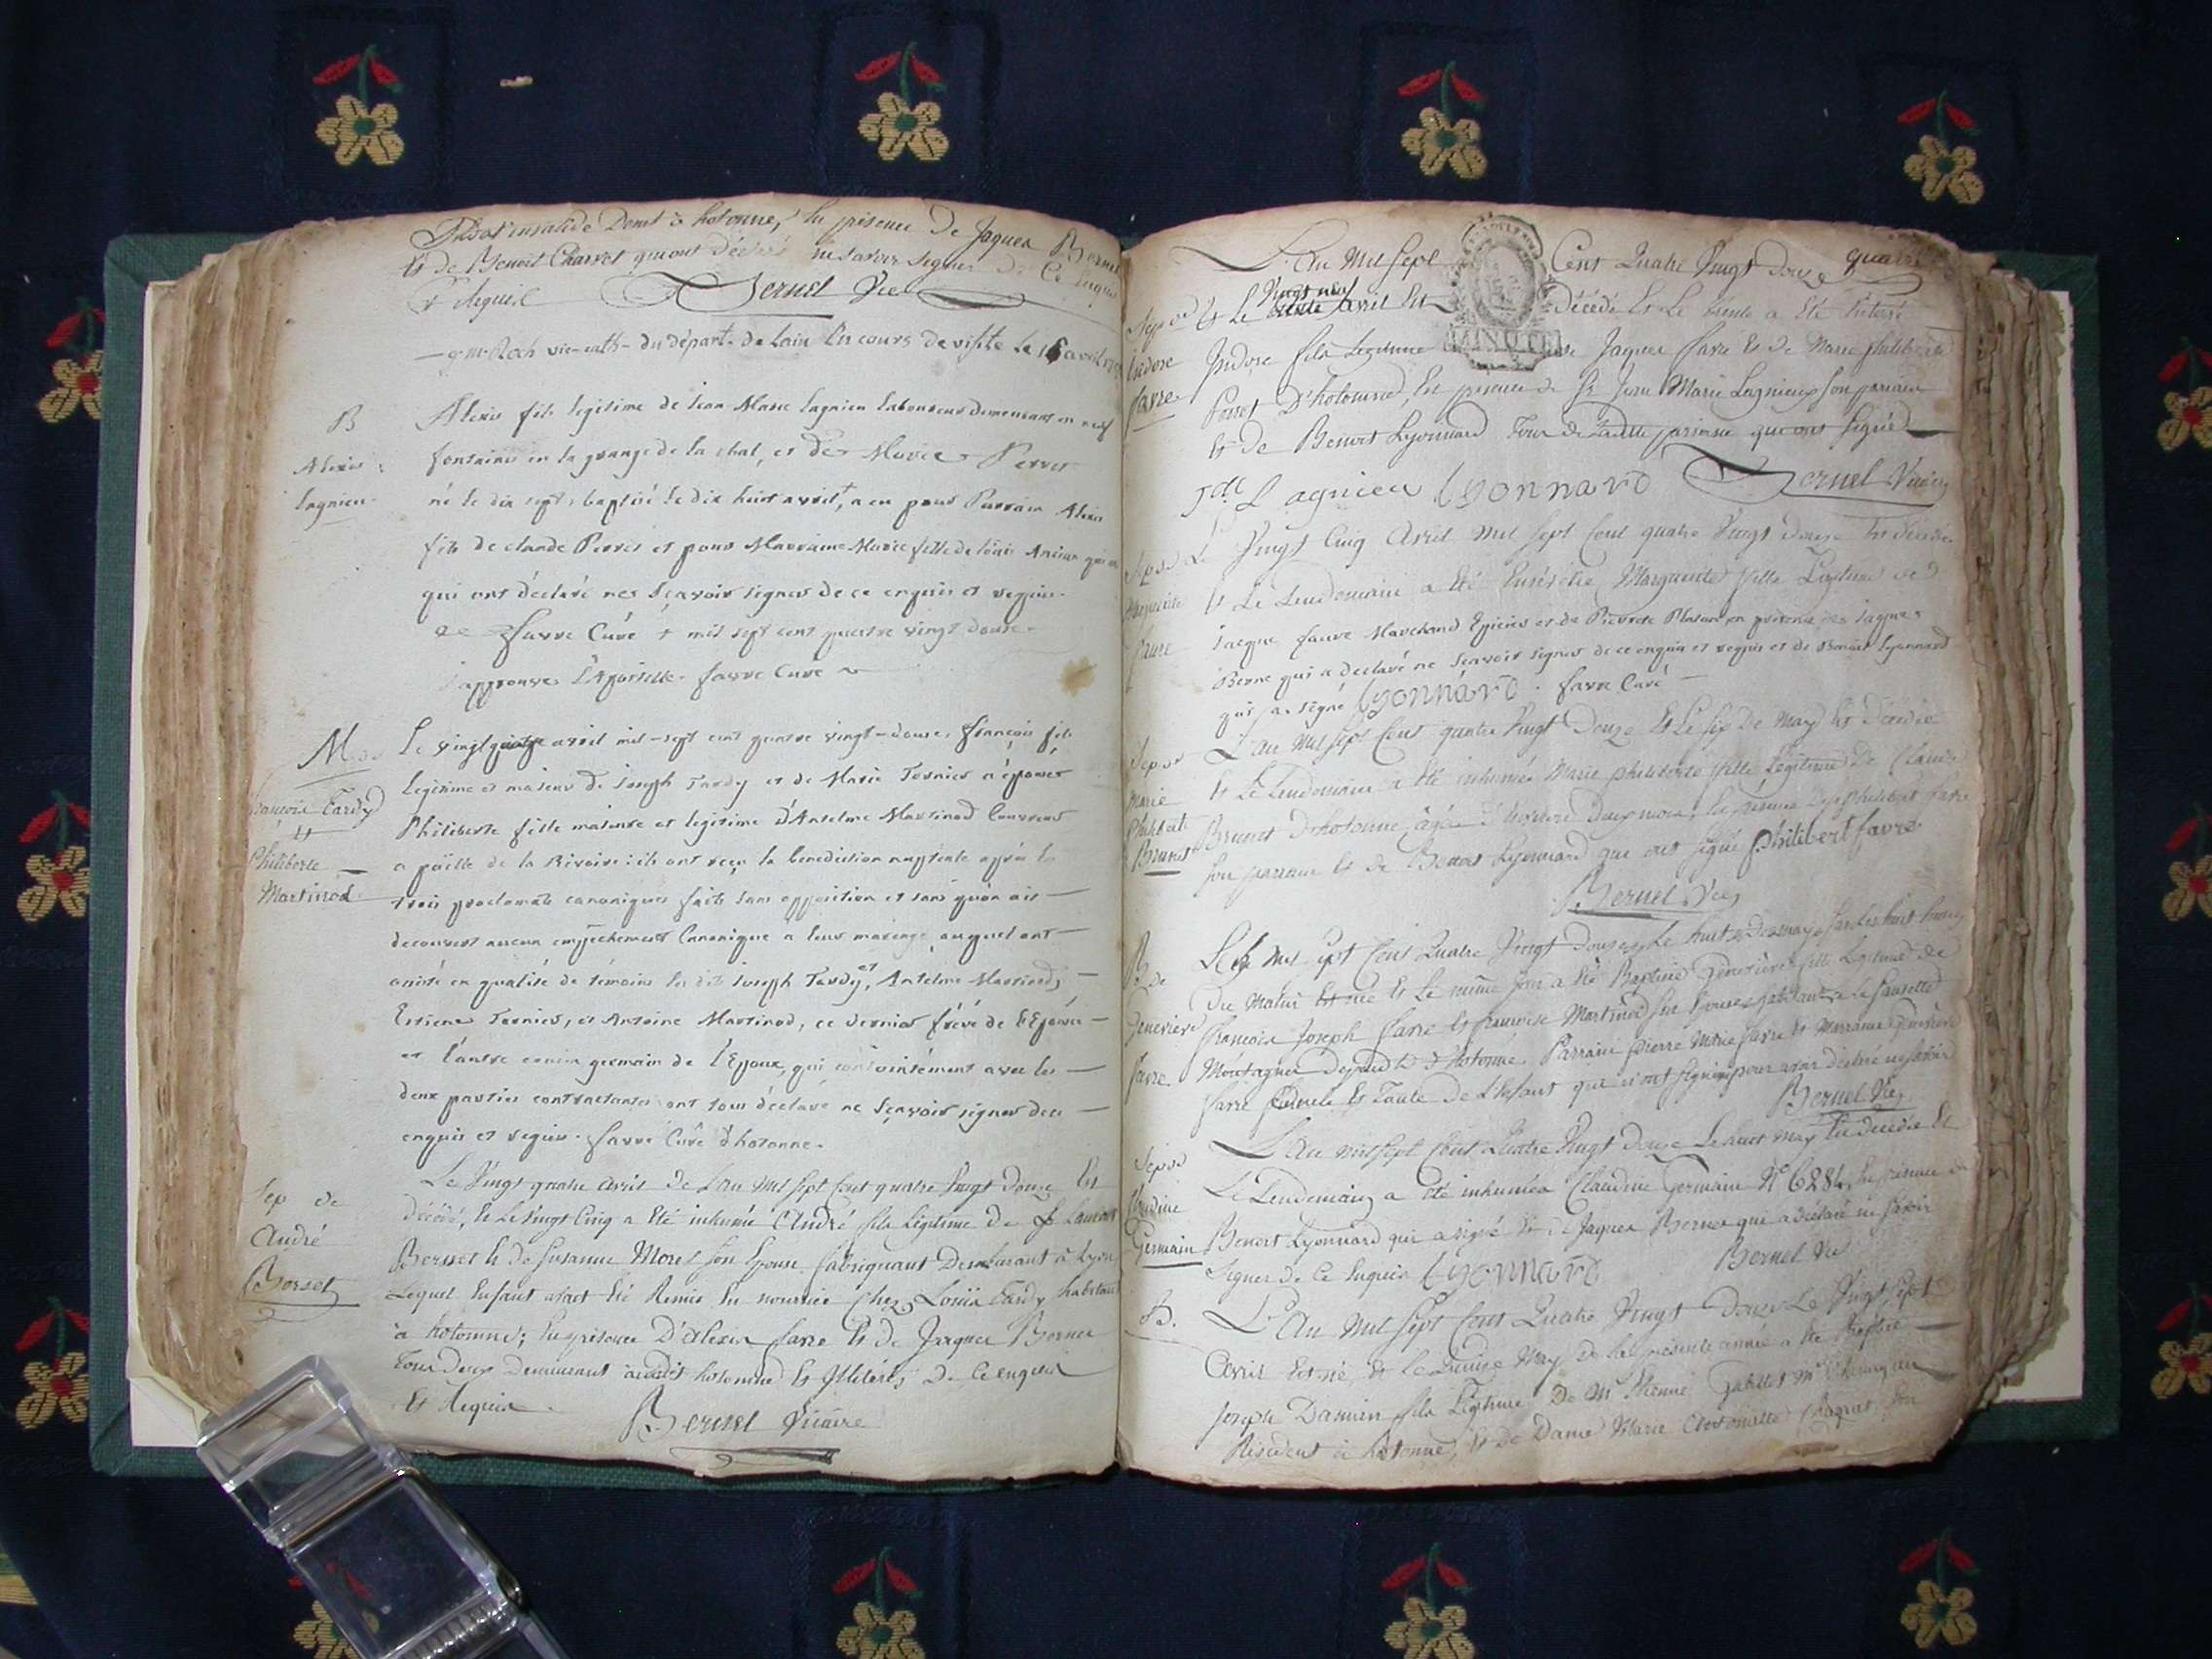 invalide Demt à hotonne, En présence de Jaques Bernet
Et de Benoit Charvet qui ont déclaré ne savoir signer De Ce Enquis
Et Requis Bernel Vic
vic-cath- du départ- de Lain En cours de visite Le 15 avril
B
Alexis
Lagnieu
Alexis fils legitime de Jean Marie Lagnieu Laboureur demeurant en
fontaines en la grange de la chal, et de Marie Perret
né le dix sept, baptisé le dix huit avril +, a eu pour Parrain Alexis
fils de claude Perret et pour Marraine Marie fille de Louis
qui ont déclaré nes Sçavoir signer de ce enquis et requis.
favre Curé + mil sept cent quatre vingt douze.
j'approuve L'Apostille. favre Curé
M. de
francois Tardy
Et
Philiberte
Martinod
Le vingtquatre avril mil-sept cent quatre vingt-douze, françois fils
legitime et majeur de joseph Tardy et de Marie Ternier a épousé
Philiberte fille majeure et legitime d'Antelme Martinod
de la Rivoire: ils ont reçu la benediction nuptiale après les
trois proclamats canoniques faits sans opposition et sans qu'on ait
decouvert aucun empêchement Canonique a leur mariage, auquel ont
assisté en qualité de témoins les dits joseph Tardy, et Antelme Martinod,
Estiene Ternier, et Antoine Martinod, ce dernier frére de L'Epouse
et l'autre cousin germain de L'Epoux, qui conjointément avec les
deux parties contractantes ont tous déclaré ne Sçavoir signer de ce
enquis et requis. favre Curé d'hotonne.
Sep de
André
Bernet
Le Vingt quatre avril de L'an Mil Sept Cent quatre Vingt Douze Est
décédé, Et Le Vingt Cinq a Eté inhumé André fils Légitime de Sr Laurent
Bernet & de Susanne Morel son Epouse fabriquant Demeurant à Lyon
Lequel Enfant avait Eté Remis En nourrice Chez Louis Tardy habitant
à hotonne; En présence D'alexis favre Et de Jaques Bernet
Tous Deux Demeurant audit hotonne Et Illiterés De Ce enquis
Et Requis.
Bernel Vicaire
quatre
L'an Mil Sept Cent Quatre Vingt Douze
Sep de
Isidore
favre
Et Le Vingt neuf avril Est décédé Et Le trente a Eté Enterré
MINUTE
Isidore fils Legitime de Jaques favre Et de Marie philiberte
Perret D'hotonne, En présence de Sr Jean Marie Lagnieux son parrain
Et de Benoit Lyonnard Tous de Ladite paroisse qui ont Signé
L agnieu Lyonnard Bernel Vicaire
Sep de
Marguerite
faure
Le Vingt Cinq Avril Mil Sept Cent quatre Vingt Douze Est décédée
Et Le Lendemain a Eté Enterrée Marguerite fille Légitime de
Jacque faure Marchand Epicier et de Pierrette en présence de Jaques
Berne qui a declaré ne Sçavoir signer de ce enquis et requis et de Benoit Lyonnard
qui a signé Lyonnard. favre Curé
Sep de
Marie
Philiberte
Brunet
L'an Mil Sept Cent quatre Vingt Douze Et Le Six De May Est Décédée
Et Le Lendemain a Eté inhumée Marie philiberte fille Légitime de Claude
Brunet D'hotonne, âgée D'Environ Deux mois, En présence De philibert favre
Son parrain Et de Benoit Lyonnard qui ont signé philibert favre
Bernel Vic
B. de
Genevieve
favre
L'an Mil Sept Cent Quatre Vingt Douze Le huit De may Sur Les huit heures
Du Matin Est née Et Le même jour a Eté Baptisée Genevieve fille Legitime de
francois Joseph favre Et francoise Martinod son Epouse habitants de la
Montagnes Dependte d'hotonne. Parrain pierre Marie favre Et Marraine Genevieve
favre Et Tante De L'Enfant qui n'ont signé pour avoir déclaré ne savoir
Bernel Vic
Sep de
Claudine
Germain
L'an mil Sept Cent Quatre Vingt Douze Le huit May Est décédée Et
Le Lendemain a été inhumée Claudine Germain No 6284 En présence de
Benoit Lyonnard qui a signé Et de Jaques Bernet qui a déclaré ne Savoir
Signer de Ce Enquis Lyonnard Bernel Vic
B.
L'an Mil Sept Cent Quatre Vingt Douze Le Vingt Sept
Avril Est né, Et le May De La présente année a Eté Baptisé
Joseph Damien fils Légitime De Mr Etienne Mr Chirurgien
Résident à hotonne, Et De Dame Marie son